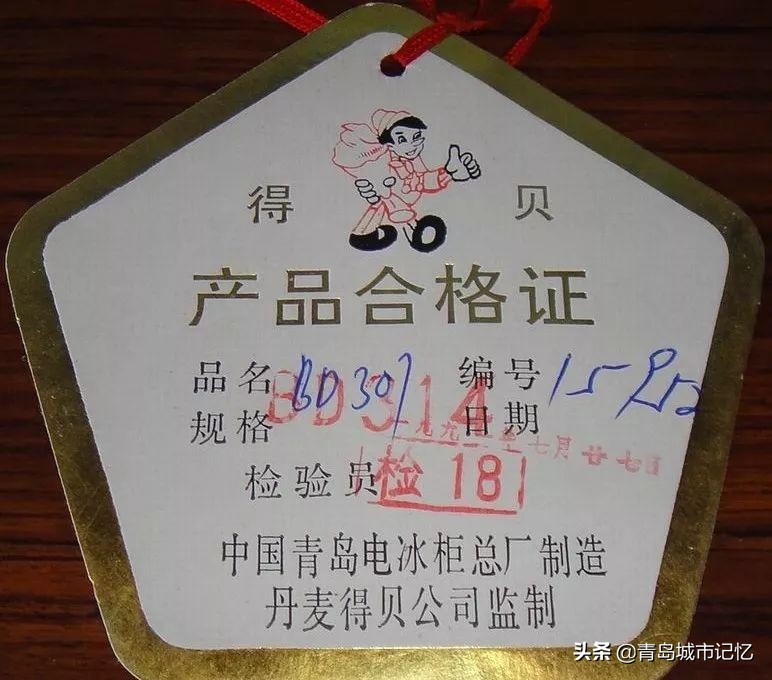 得 贝
产品合格证
品名 BD307 编号
规格 BD314 日期
七月廿七日
检验员 检 181
中国青岛电冰柜总厂制造
丹麦得贝公司监制
头条 @青岛城市记忆